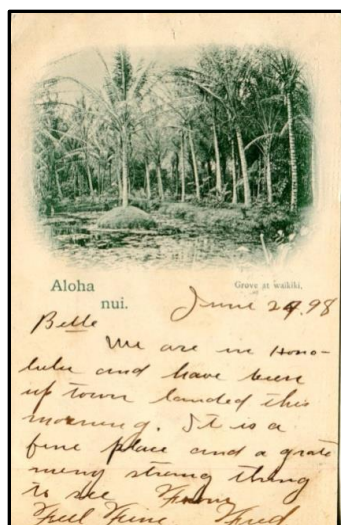 Aloha
nui.
Grove at waikiki.
June 24.98
Belle
We are in Hono-
lulu and have been
up town landed this
morning. It is a
fine place and a grate
meny strang thing
to see From
Feel Fine Fred